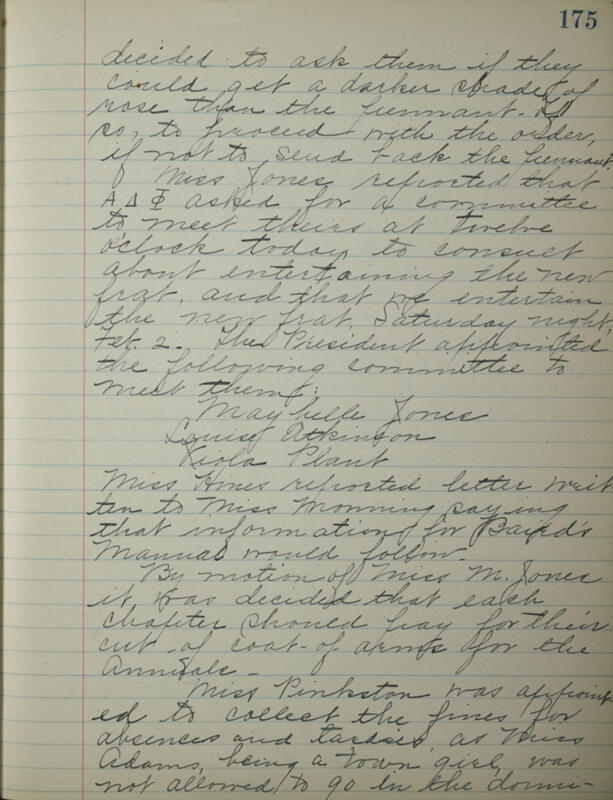 175
decided to ask them if they
could get a darker shade of
rose than the pennant. If
so, to proceed with the order,
if not to send back the pennant.
Miss Jones reported that
A Δ Φ asked for a committee
to meet theirs at twelve
o'clock today to consult
about entertaining the new
frat, and that we entertain
the new frat Saturday night,
Feb 2. The President appointed
the following committee to
meet them:
Maybelle Jones
Louise Atkinson
Viola Plant
Miss Hines reported letter writ
ten to Miss Morning saying
that information for Baird's
Manual would follow.
By motion of Miss M. Jones
it was decided that each
chapter should pay for their
cut of coat-of arms for the
Annuals-
Miss Pinkston was appoint
ed to collect the fines for
absences and tardies, as Miss
Adams, being a town girl, was
not allowed to go in the dormi-